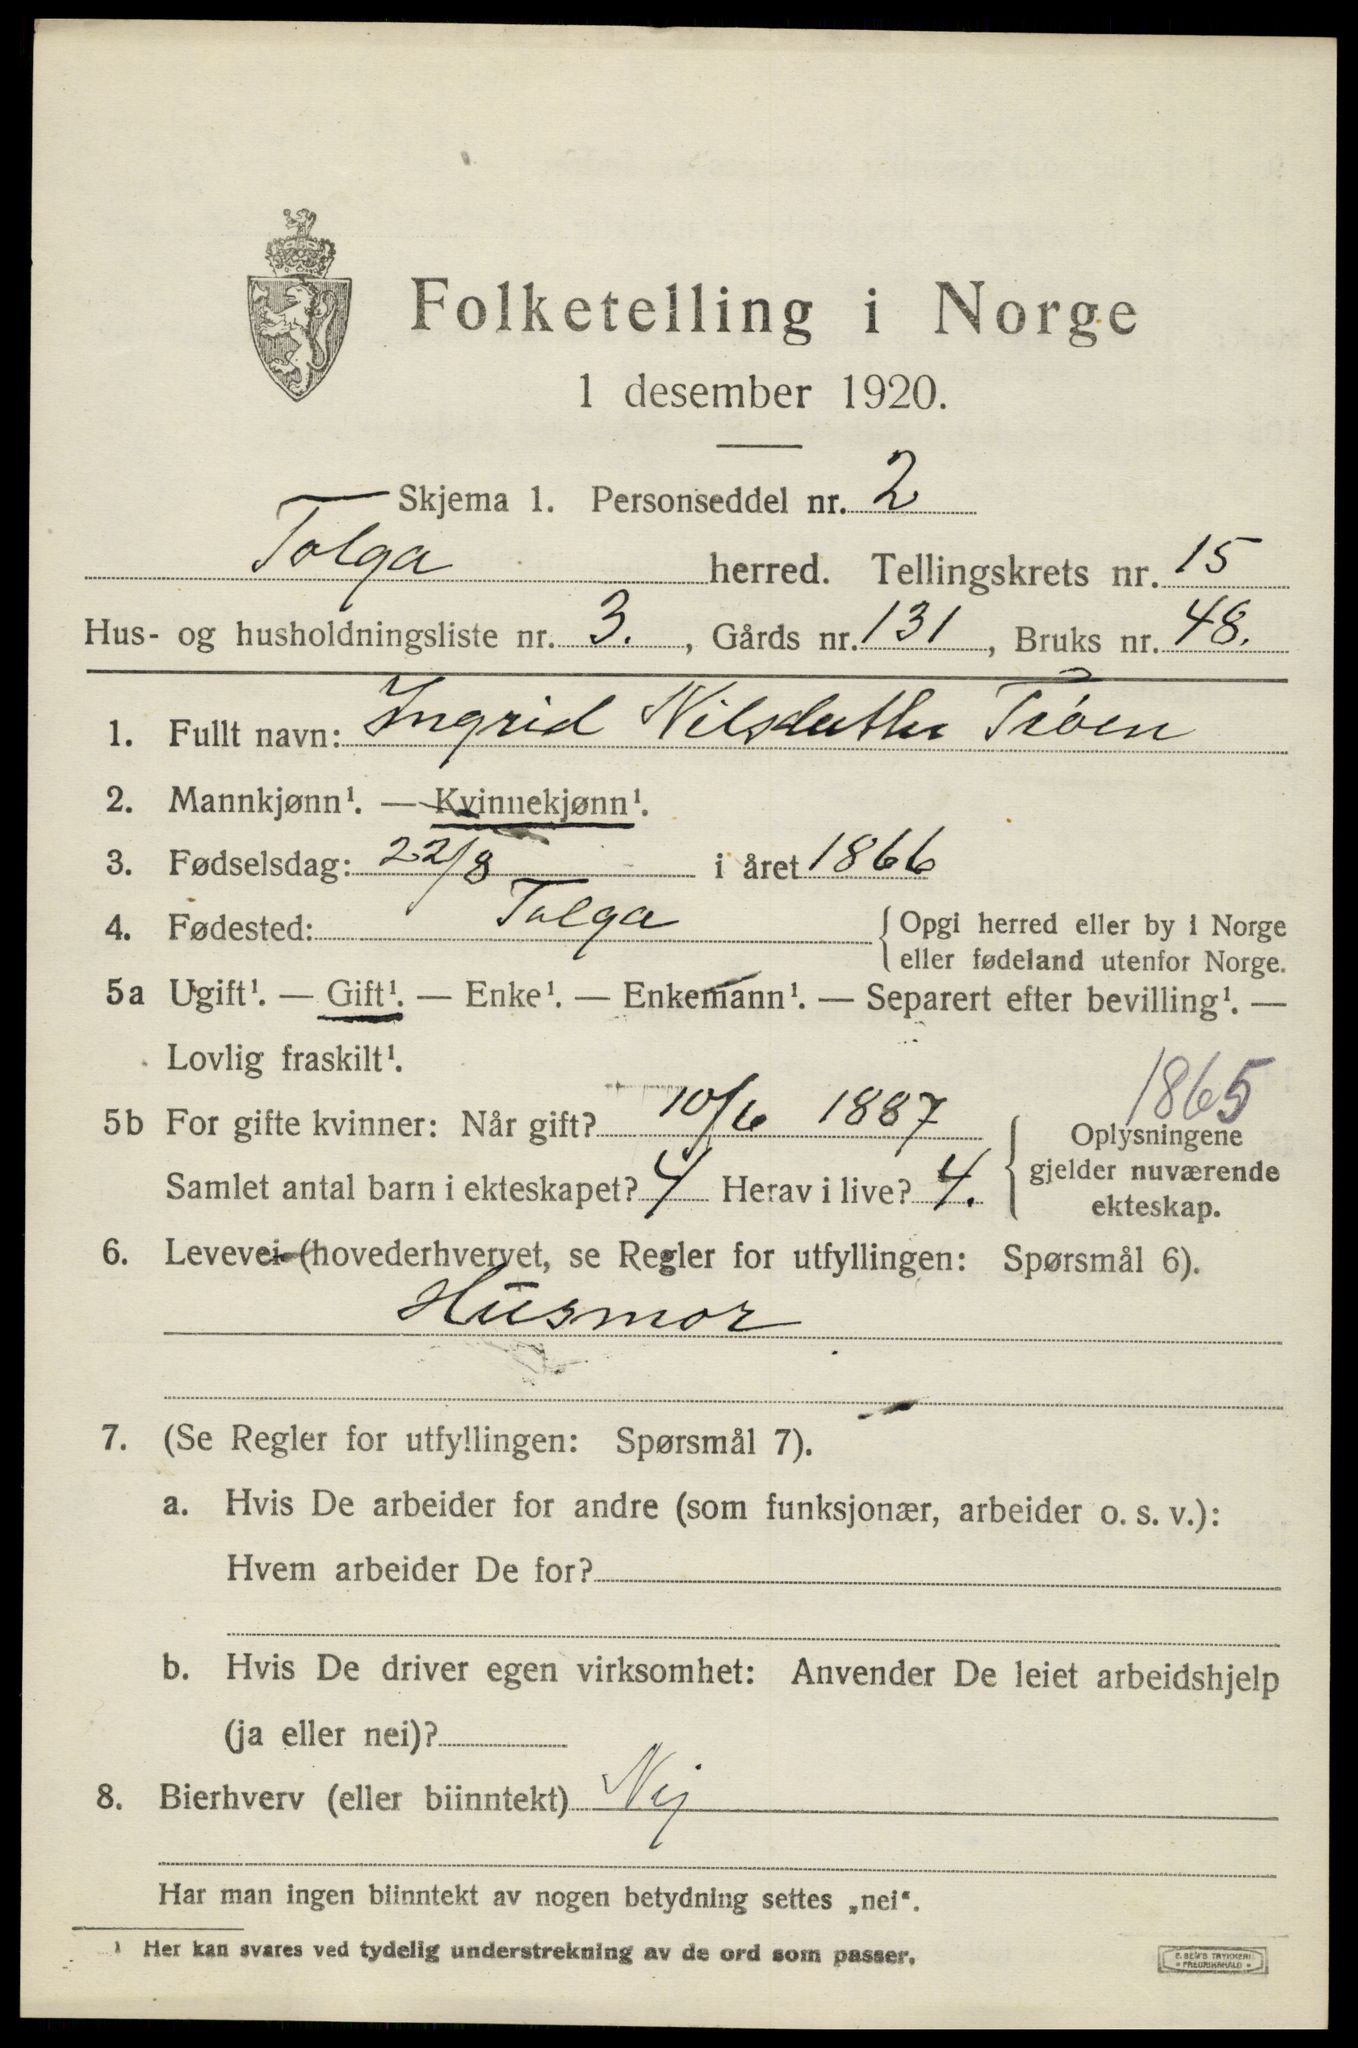 Folketelling i Norge
1 desember 1920.
Skjema 1. Personseddel nr. 2
Tolga herred. Tellingskrets nr. 15
Hus- og husholdningsliste nr. 3. , Gårds nr. 131 , Bruks nr. 48.
1. Fullt navn: Ingrid Nilsdatter Trøen
2. Mannkjønn¹. — Kvinnekjønn¹.
3. Fødselsdag: 22/8 i året 1866
4. Fødested: Tolga { Opgi herred eller by i Norge
eller fødeland utenfor Norge.
5a Ugift¹. — Gift¹. — Enke¹. — Enkemann¹. — Separert efter bevilling¹. —
Lovlig fraskilt¹.
1865
5b For gifte kvinner: Når gift? 10/6 1887
Samlet antal barn i ekteskapet? 4 Herav i live? 4.
Oplysningene
gjelder nuværende
ekteskap.
6. Levevei (hovederhvervet, se Regler for utfyllingen: Spørsmål 6).
Husmor
7. (Se Regler for utfyllingen: Spørsmål 7).
a. Hvis De arbeider for andre (som funksjonær, arbeider o. s. v.):
Hvem arbeider De for?
b. Hvis De driver egen virksomhet: Anvender De leiet arbeidshjelp
(ja eller nei)?
8. Bierhverv (eller biinntekt) Nej
Har man ingen biinntekt av nogen betydning settes „nei“.
¹ Her kan svares ved tydelig understrekning av de ord som passer.
E. SEM'S TRYKKERI
FREDRIKSHALD